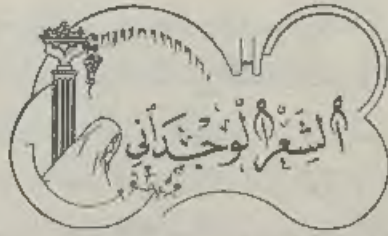 أَلشِّعْرُ أُلْوِجْدَانِي